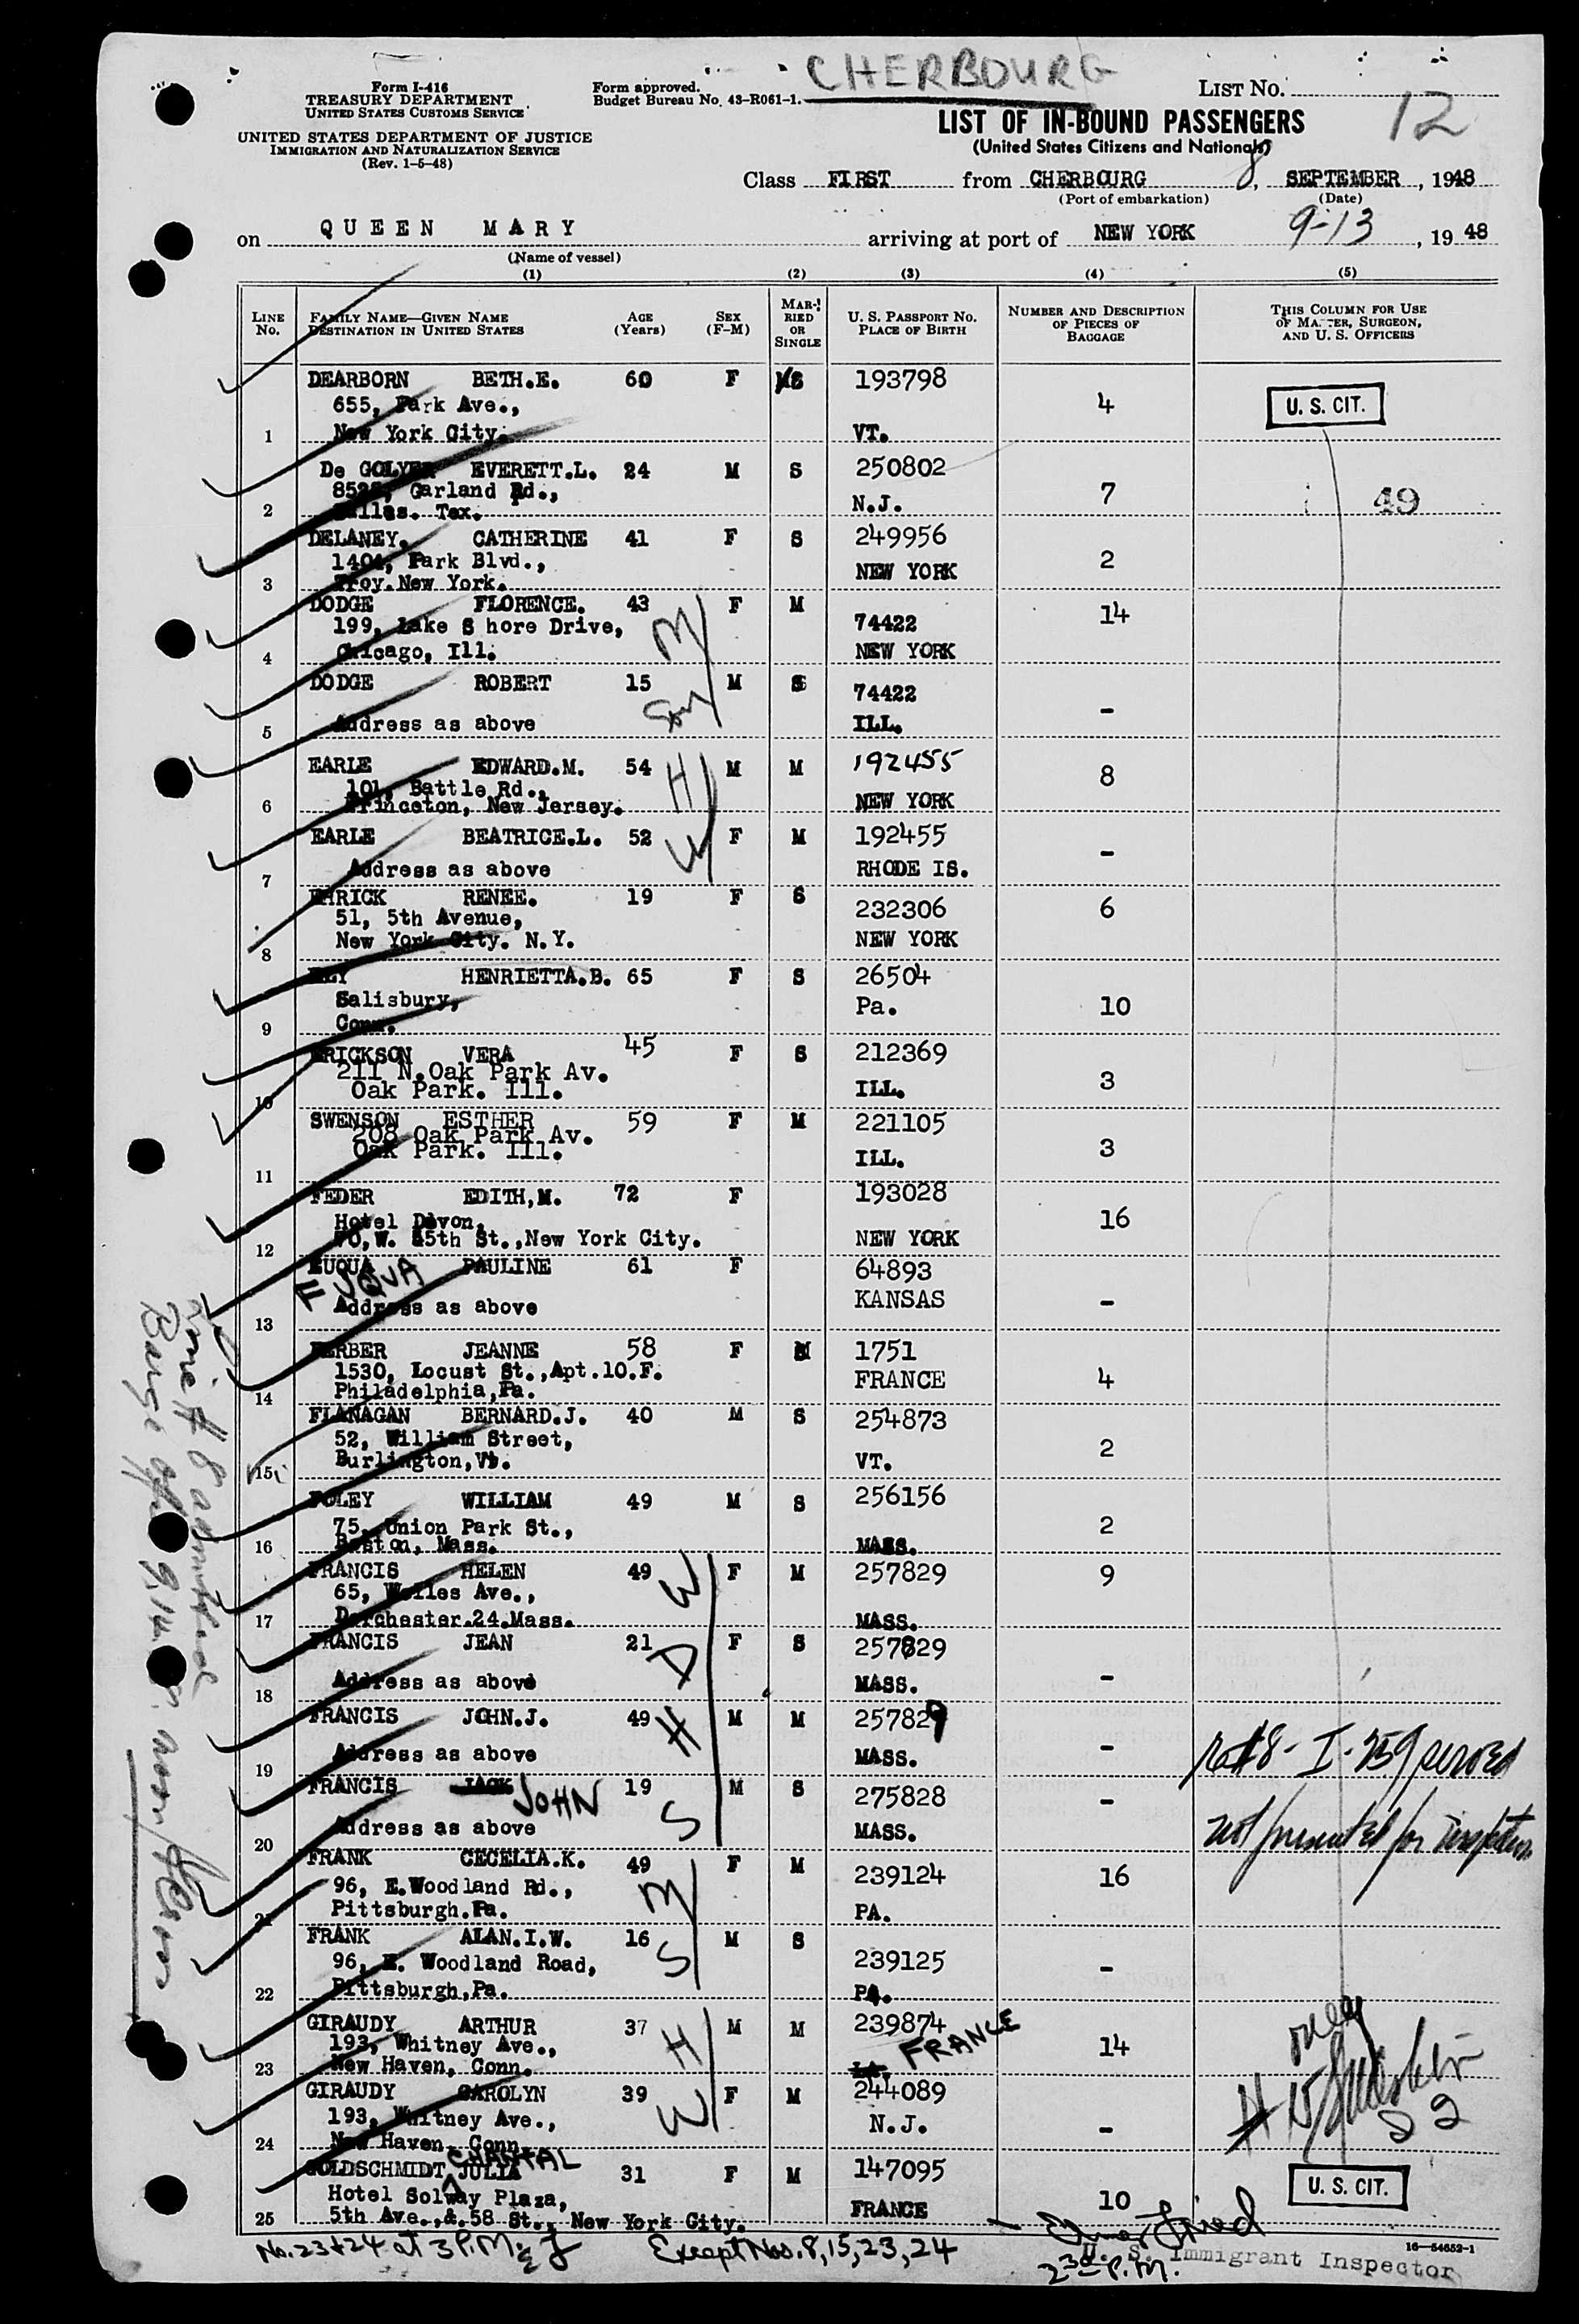 CHERBOURG
Form I-416
TREASURY DEPARTMENT
UNITED STATES CUSTOMS SERVICE
UNITED STATES DEPARTMENT OF JUSTICE
IMMIGRATION AND NATURALIZATION SERVICE
(Rev. 1-5-48)
Form approved.
Budget Bureau No. 43-R061-1.
LIST NO.
12
LIST OF IN-BOUND PASSENGERS
(United States Citizens and Nationals)
Class FIRST from CHERBOURG 8, SEPTEMBER, 1948
(Port of embarkation) (Date)
on QUEEN MARY arriving at port of NEW YORK 9-13, 1948
(Name of vessel)
(1) (2) (3) (4) (5)
LINE No. FAMILY NAME—GIVEN NAME DESTINATION IN UNITED STATES AGE (Years) SEX (F-M) MARRIED OR SINGLE U. S. PASSPORT NO. PLACE OF BIRTH NUMBER AND DESCRIPTION OF PIECES OF BAGGAGE THIS COLUMN FOR USE OF MASTER, SURGEON, AND U. S. OFFICERS
DEARBORN BETH.E. 60 F S 193798
655, Park Ave., 4 U. S. CIT.
1 New York City. VT.
De GOLYER EVERETT.L. 24 M S 250802
Garland Rd., 7 49
2 Dallas. Tex. N.J.
DELANEY. CATHERINE 41 F S 249956
1404, Park Blvd., 2
3 Troy.New York. NEW YORK
DODGE FLORENCE. 43 M F M 14
199, Lake S hore Drive, 74422
4 Chicago, Ill. NEW YORK
DODGE ROBERT 15 Son M S 74422
5 Address as above ILL. -
EARLE EDWARD.M. 54 H M M 192455
101, Battle Rd., 8
6 Princeton, New Jersey. NEW YORK
EARLE BEATRICE.L. 52 W F M 192455
7 Address as above RHODE IS. -
EHRICK RENEE. 19 F S 232306 6
51, 5th Avenue,
8 New York City. N.Y. NEW YORK
ELY HENRIETTA.B. 65 F S 26504
Salisbury, Pa. 10
9 Conn.
ERICKSON VERA 45 F S 212369
211 N.Oak Park Av. 3
10 Oak Park. Ill. ILL.
SWENSON ESTHER 59 F M 221105
208 Oak Park Av. 3
11 Oak Park. Ill. ILL.
FEDER EDITH,M. 72 F 193028
Hotel Devon, 16
12 70,W. 55th St.,New York City. NEW YORK
FUQUA PAULINE 61 F 64893
FUQUA KANSAS
13 Address as above -
FERBER JEANNE 58 F M 1751
1530, Locust St.,Apt.10.F. FRANCE 4
14 Philadelphia,Pa.
FLANAGAN BERNARD.J. 40 M S 254873
52, William Street, 2
15 Burlington,Vt. VT.
FOLEY WILLIAM 49 M S 256156
75, Union Park St., 2
16 Boston, Mass. MASS.
FRANCIS HELEN 49 W F M 257829 9
65, Welles Ave.,
17 Dorchester.24.Mass. MASS.
FRANCIS JEAN 21 D F S 257829
18 Address as above MASS. -
FRANCIS JOHN.J. 49 H M M 257829
19 Address as above MASS. - No #8- I-259 served
FRANCIS JACK JOHN 19 S M S 275828 -
20 Address as above MASS. not presented for inspection
FRANK CECELIA.K. 49 M F M 239124 16
96, E.Woodland Rd.,
21 Pittsburgh.Pa. PA.
FRANK ALAN.I.W. 16 S M S 239125
96, E. Woodland Road, -
22 Pittsburgh,Pa. PA.
GIRAUDY ARTHUR 37 H M M 239874
193, Whitney Ave., FRANCE 14
23 New Haven, Conn.
GIRAUDY CAROLYN 39 W F M 244089
193, Whitney Ave., N.J. -
24 New Haven. Conn.
CHANTAL
GOLDSCHMIDT JULIA 31 F M 147095 U. S. CIT.
Hotel Solway Plaza, 10
25 5th Ave.,&.58 St., New York City. FRANCE
No. 23+24 at 3 P.M. Except Nos. 8, 15, 23, 24
U. S. Immigrant Inspector
2 P.M.
16—54652-1
Line #8 admitted
Barge Office